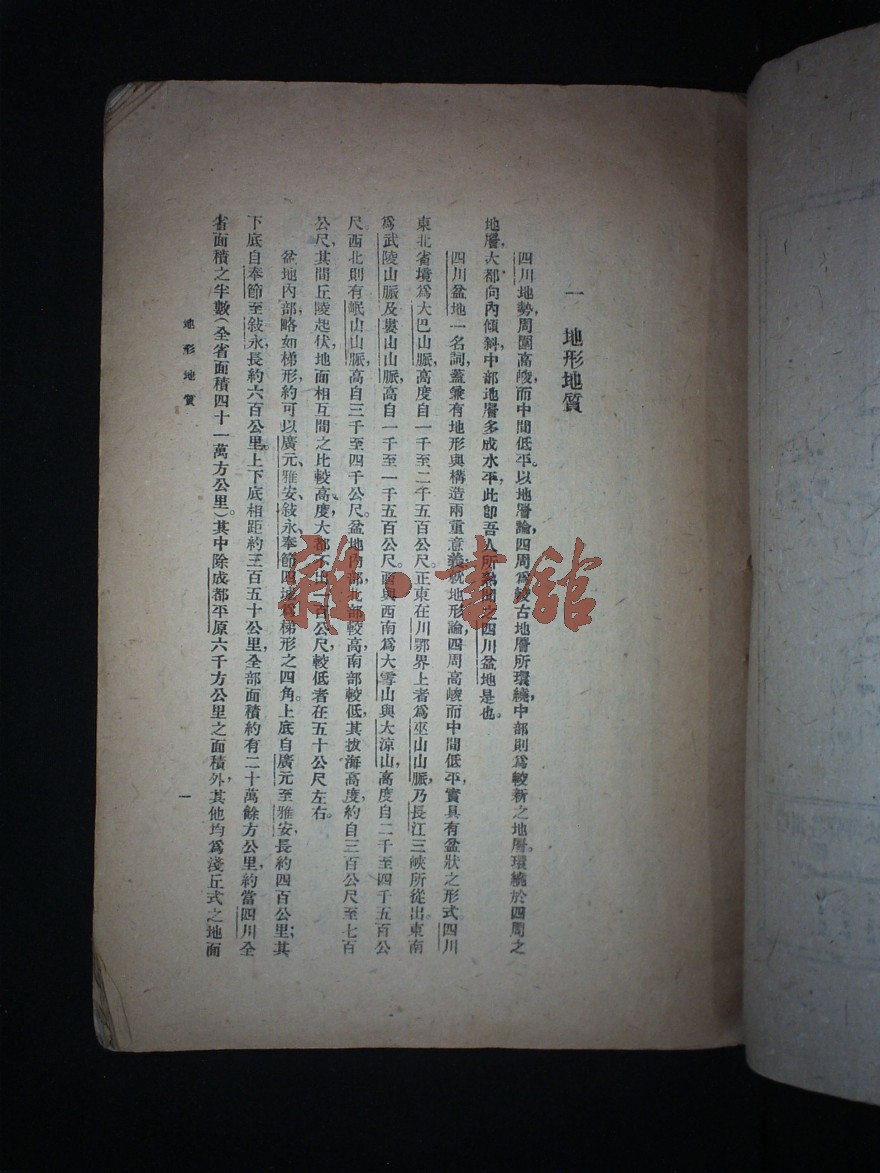 一　地形地質
四川地勢，周圍高峻，而中間低平。以地層論，四周為較古地層所環繞，中部則為較新之地層。環繞於四周之
地層，大都向內傾斜，中部地層多成水平，此卽吾人所之四川盆地是也。
四川盆地一名詞，蓋兼有地形與構造兩重意義，就地形論，四周高峻而中間低平，實具有盆狀之形式，四川
東北省境為大巴山脈，高度自一千至二千五百公尺。正東在川鄂界上者為巫山山脈，乃長江三峽所從出。東南
為武陵山脈及婁山山脈，高自一千至一千五百公尺。西與西南為大雪山與大涼山，高度自二千至四千五百公
尺西北則有岷山山脈，高自三千至四千公尺。盆地內部，北部較高，南部較低，其拔海高度，約自三百公尺至七百
公尺，其間丘陵起伏，地面相互間之比較高度，大都不出一百公尺，較低者在五十公尺左右。
盆地內部，略如梯形，約可以廣元、雅安、敍永、奉節四地為梯形之四角。上底自廣元至雅安，長約四百公里；其
下底自奉節至敍永，長約六百公里。上下底相距約三百五十公里，全部面積約有二十萬餘方公里，約當四川全
省面積之半數（全省面積四十一萬方公里）。其中除成都平原六千方公里之面積外，其他均為淺丘式之地面
地形地質
一
雜·書館